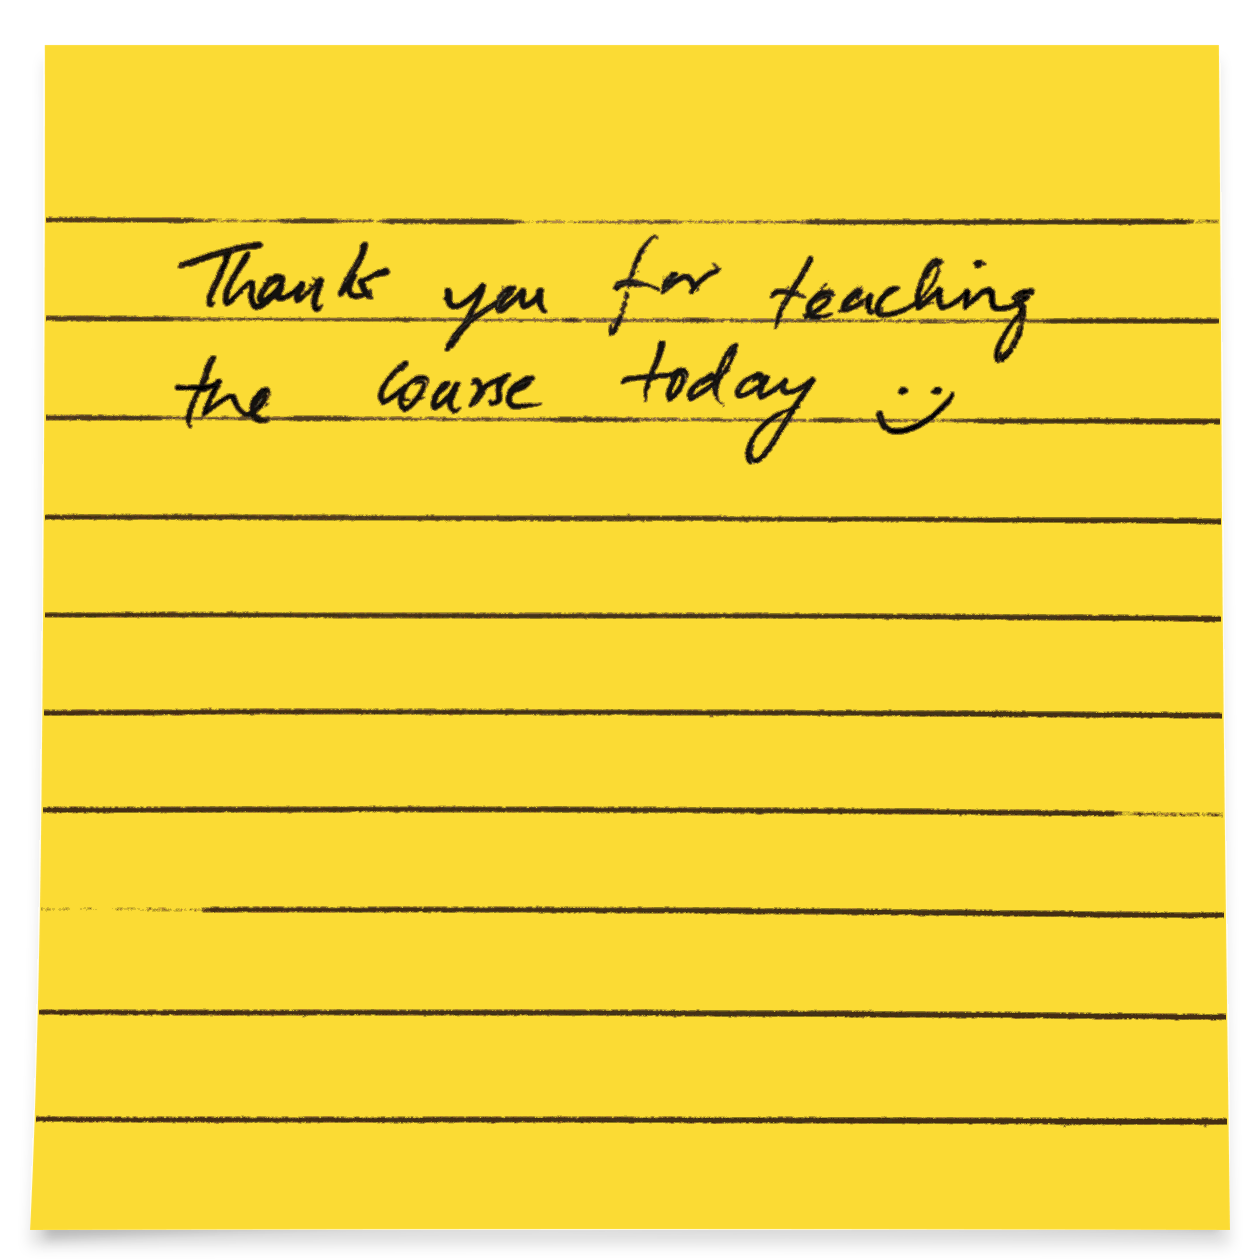 Thank you for teaching
the course today :)